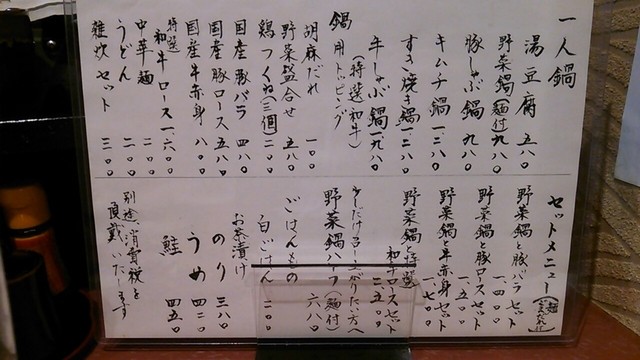 一人鍋
湯豆腐 五八〇
野菜鍋(麺付)九八〇
豚しゃぶ鍋 九八〇
キムチ鍋 一三八〇
すき焼き鍋 一三八〇
牛しゃぶ鍋 一九八〇
(特選和牛)
鍋用トッピング
胡麻だれ 一〇〇
野菜盛合せ 五八〇
鶏つくね(三個)二〇〇
国産豚バラ 四八〇
国産豚ロース 五八〇
国産牛赤身 八〇〇
特選和牛ロース 一、六〇〇
中華麺 二〇〇
うどん 二〇〇
雑炊セット 三〇〇
セットメニュー
野菜鍋と豚バラセット 一四〇〇
野菜鍋と豚ロースセット 一五〇〇
野菜鍋と牛赤身セット 一七〇〇
野菜鍋と特選
和牛ロースセット 二五〇〇
野菜鍋ハーフ(麺付)六八〇
ごはんもの
白ごはん 二〇〇
お茶漬け
のり 三八〇
うめ 四二〇
鮭 四五〇
別途消費税を
頂戴いたします